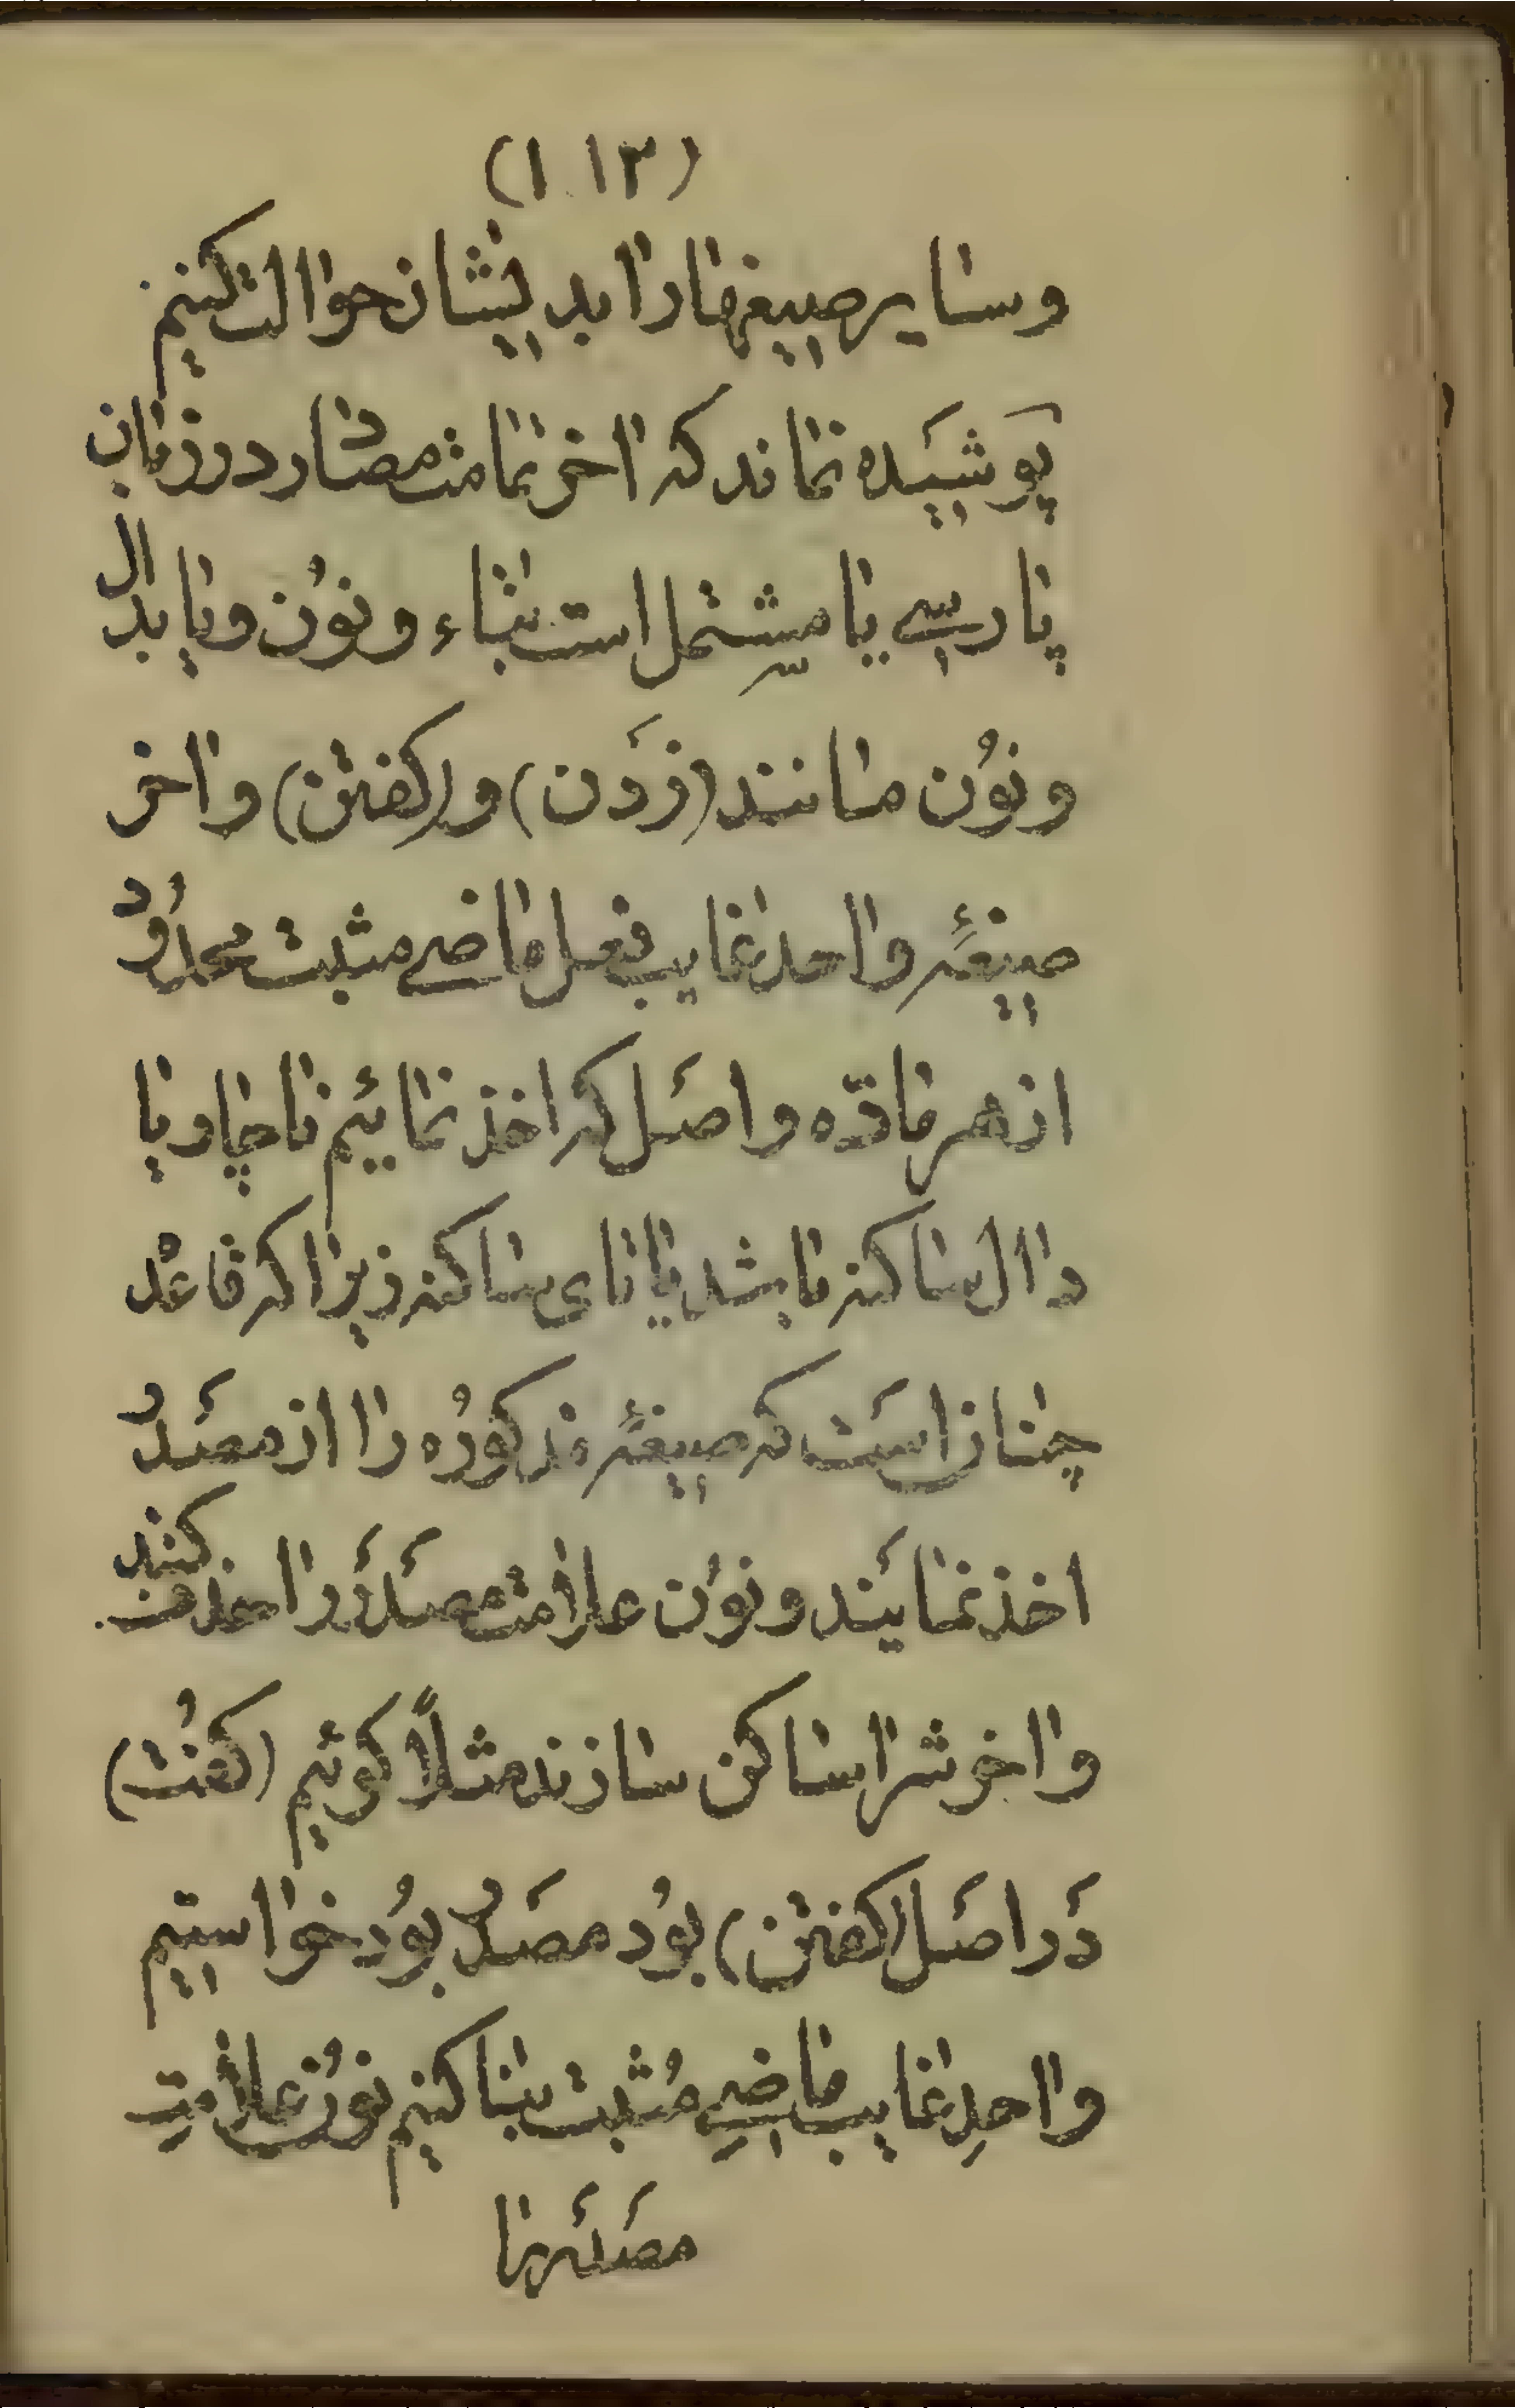 (۱۱۳)
وسایر صیغهارا بدیشان حوالت کنیم
پوشیده نماند که اخر تمامت مصادر در زبان
پارسی یا مشتمل است بتاء ونون ویا بدال
ونون مانند (زدن) و (کفتن) واخر
صیغهٔ واحد غایب فعل ماضی مثبت معلوم
از هر مادّه واصل که اخذ نمائیم ناچار ویا
دال ساکنه باشد یا تای ساکنه زیرا که قاعده
چنان است که صیغهٔ مذکوره را از مصدر
اخذ نمایند ونون علامت مصدر را حذف کنند
واخرش را ساکن سازند مثلاً کوئیم (کفت)
در اصل (کفتن) بود مصدر بود خواستیم
واحد غایب ماضی مثبت بنا کنیم نون علامت
مصدر را